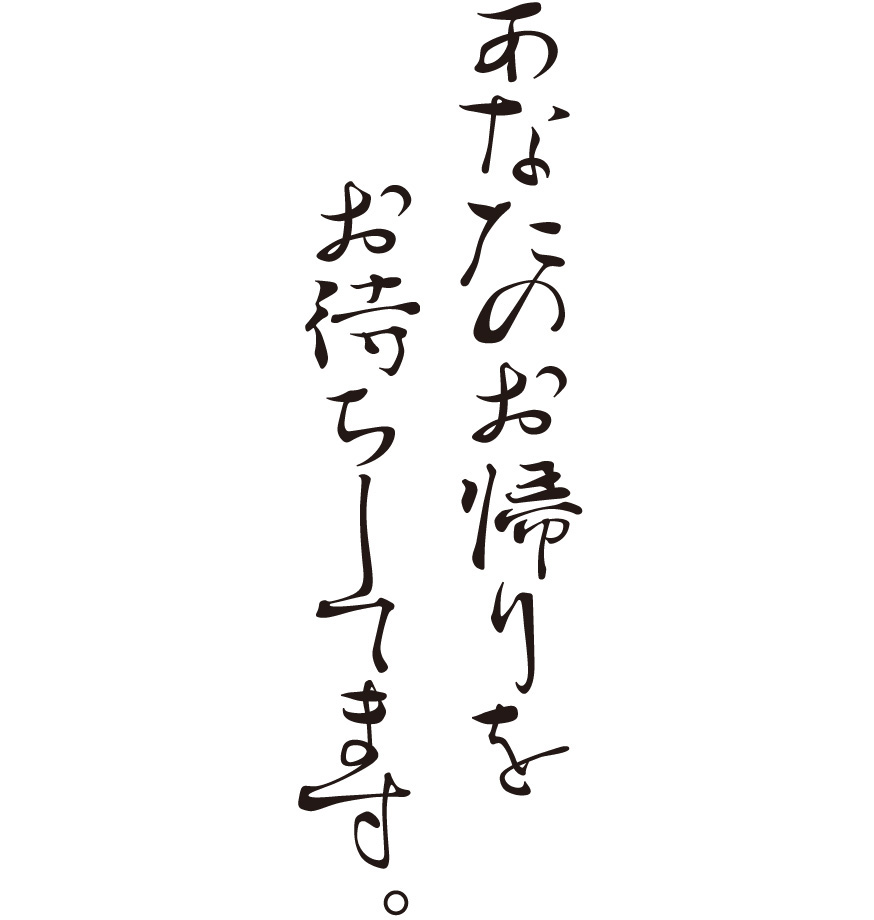 あなたのお帰りを
お待ちしてます。